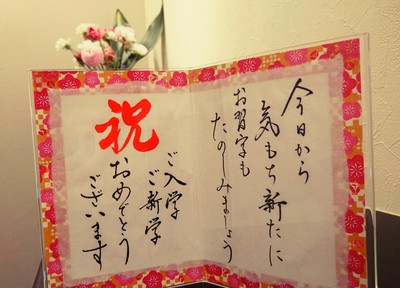 今日から
気もち新たに
お習字も
たのしみましょう
祝
ご入学
ご新学
おめでとう
ございます